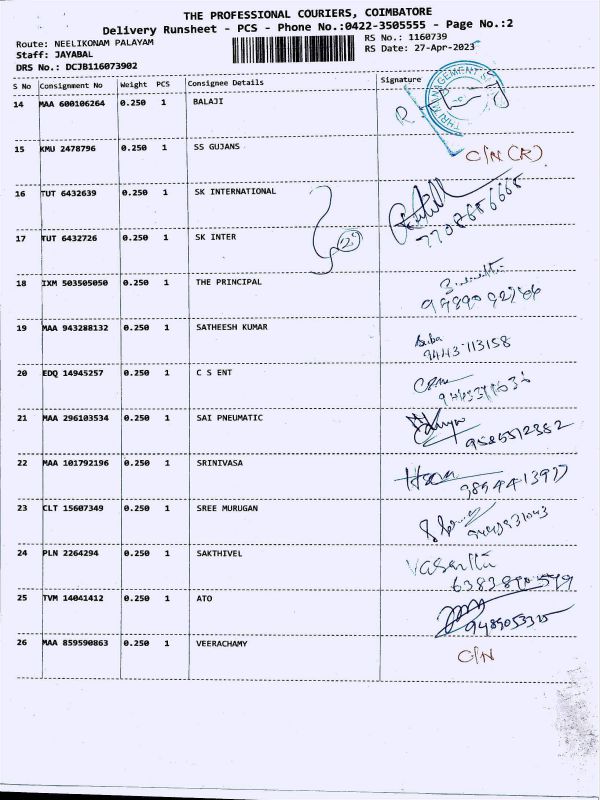 THE PROFESSIONAL COURIERS, COIMBATORE
Delivery Runsheet - PCS - Phone No.:0422-3505555 - Page No.:2
Route: NEELIKONAM PALAYAM RS No.: 1160739
Staff: JAYABAL RS Date: 27-Apr-2023
DRS No.: DCJB116073902
S No Consignment No Weight PCS Consignee Details Signature
14 MAA 600106264 0.250 1 BALAJI
15 KMU 2478796 0.250 1 SS GUJANS C/N (R)
16 TUT 6432639 0.250 1 SK INTERNATIONAL
7708686668
17 TUT 6432726 0.250 1 SK INTER
18 IXM 503505050 0.250 1 THE PRINCIPAL
19 MAA 943288132 0.250 1 SATHEESH KUMAR
9443713158
20 EDQ 14945257 0.250 1 C S ENT
21 MAA 296103534 0.250 1 SAI PNEUMATIC
9585512352
22 MAA 101792196 0.250 1 SRINIVASA
23 CLT 15607349 0.250 1 SREE MURUGAN
24 PLN 2264294 0.250 1 SAKTHIVEL
Vasantha
6383890579
25 TVM 14041412 0.250 1 ATO
26 MAA 859590863 0.250 1 VEERACHAMY C/N